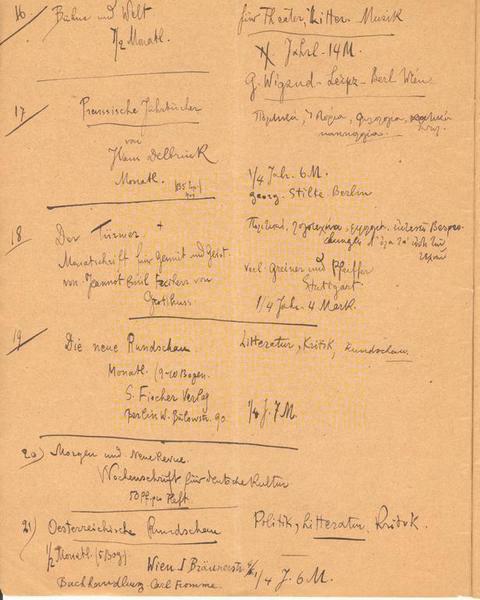 16 Bühne und Welt für Theater, Litter. Musik
1/2 Monatl. Jährl. 14 M.
G. Wigand - Leipz - Berl Wien
17 Preussische Jahrbücher
von
Hans Delbrück
Monatl. 1/4 Jahr. 6 M.
Georg. Stilke. Berlin
18 Der Türmer.
Monatschrift für Gemüt und Geist
von Jeannot Emil Freiherr von
Grotthuss.
Verl. Greiner und Pfeiffer
Stuttgart
1/4 Jahr. 4 Mark.
19 Die neue Rundschau. Litteratur, Kritik, Rundschau.
Monatl. (9-10 Bogen.
S. Fischer Verlag
Berlin W. Bülowstr. 90. 1/4 J. 7 M.
20) Morgen und Neue Revue.
Wochenschrift für deutsche Kultur
50 Pf. pro Heft.
21) Oesterreichische Rundschau Politik, Litteratur, Kritik.
1/2 Monatl. (5 Bog.) Wien I Bräunerstr. 1/4 J. 6 M.
Buchhandlung Carl Fromme.